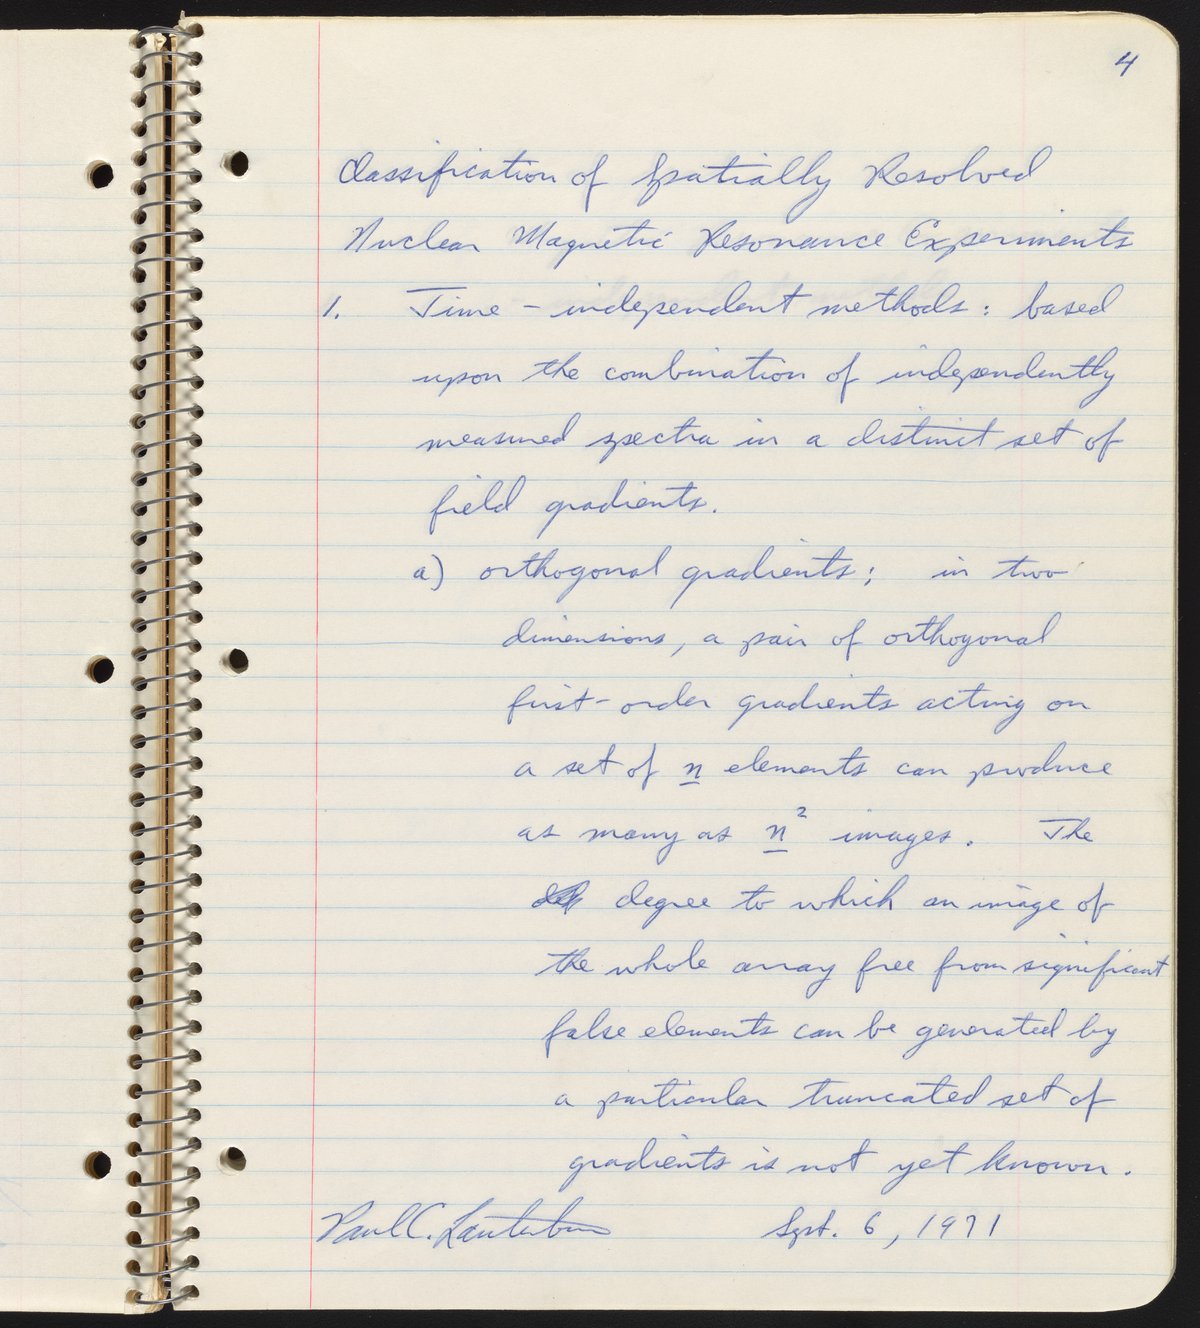 4
Classification of Spatially Resolved
Nuclear Magnetic Resonance Experiments
1. Time-independent methods: based
upon the combination of independently
measured spectra in a distinct set of
field gradients.
a) orthogonal gradients; in two
dimensions, a pair of orthogonal
first-order gradients acting on
a set of n elements can produce
as many as n² images. The
degree to which an image of
the whole array free from significant
false elements can be generated by
a particular truncated set of
gradients is not yet known.
Paul C. Lauterbur Sept. 6, 1971